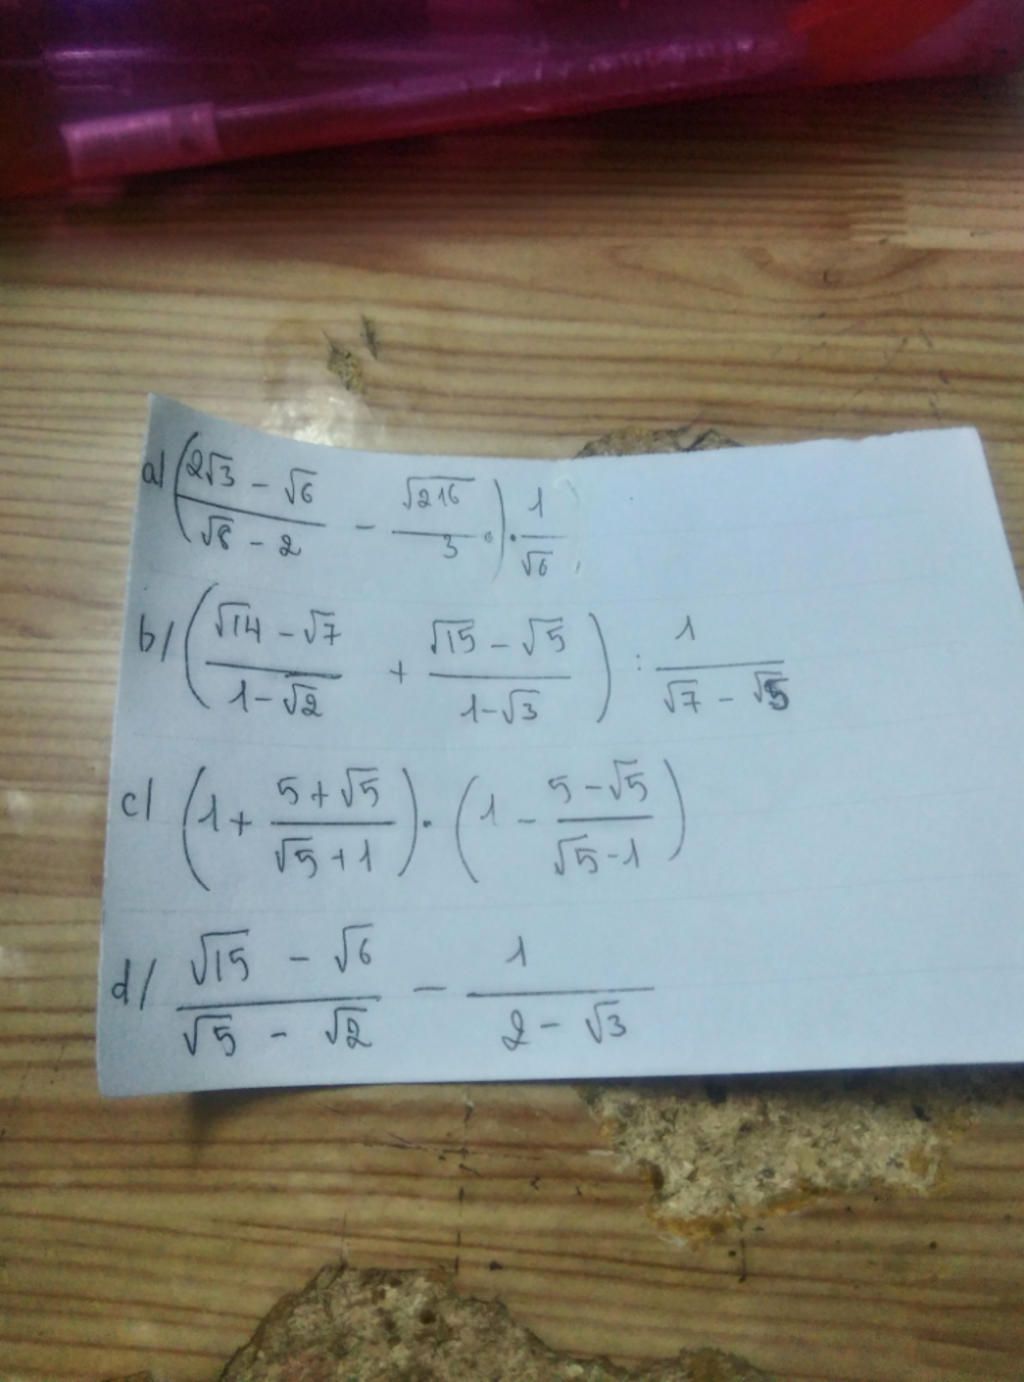 a) (2√3 - √6 / √8 - 2 - √216 / 3) . 1 / √6
b) (√14 - √7 / 1 - √2 + √15 - √5 / 1 - √3) : 1 / √7 - √5
c) (1 + 5 + √5 / √5 + 1) . (1 - 5 - √5 / √5 - 1)
d) √15 - √6 / √5 - √2 - 1 / 2 - √3